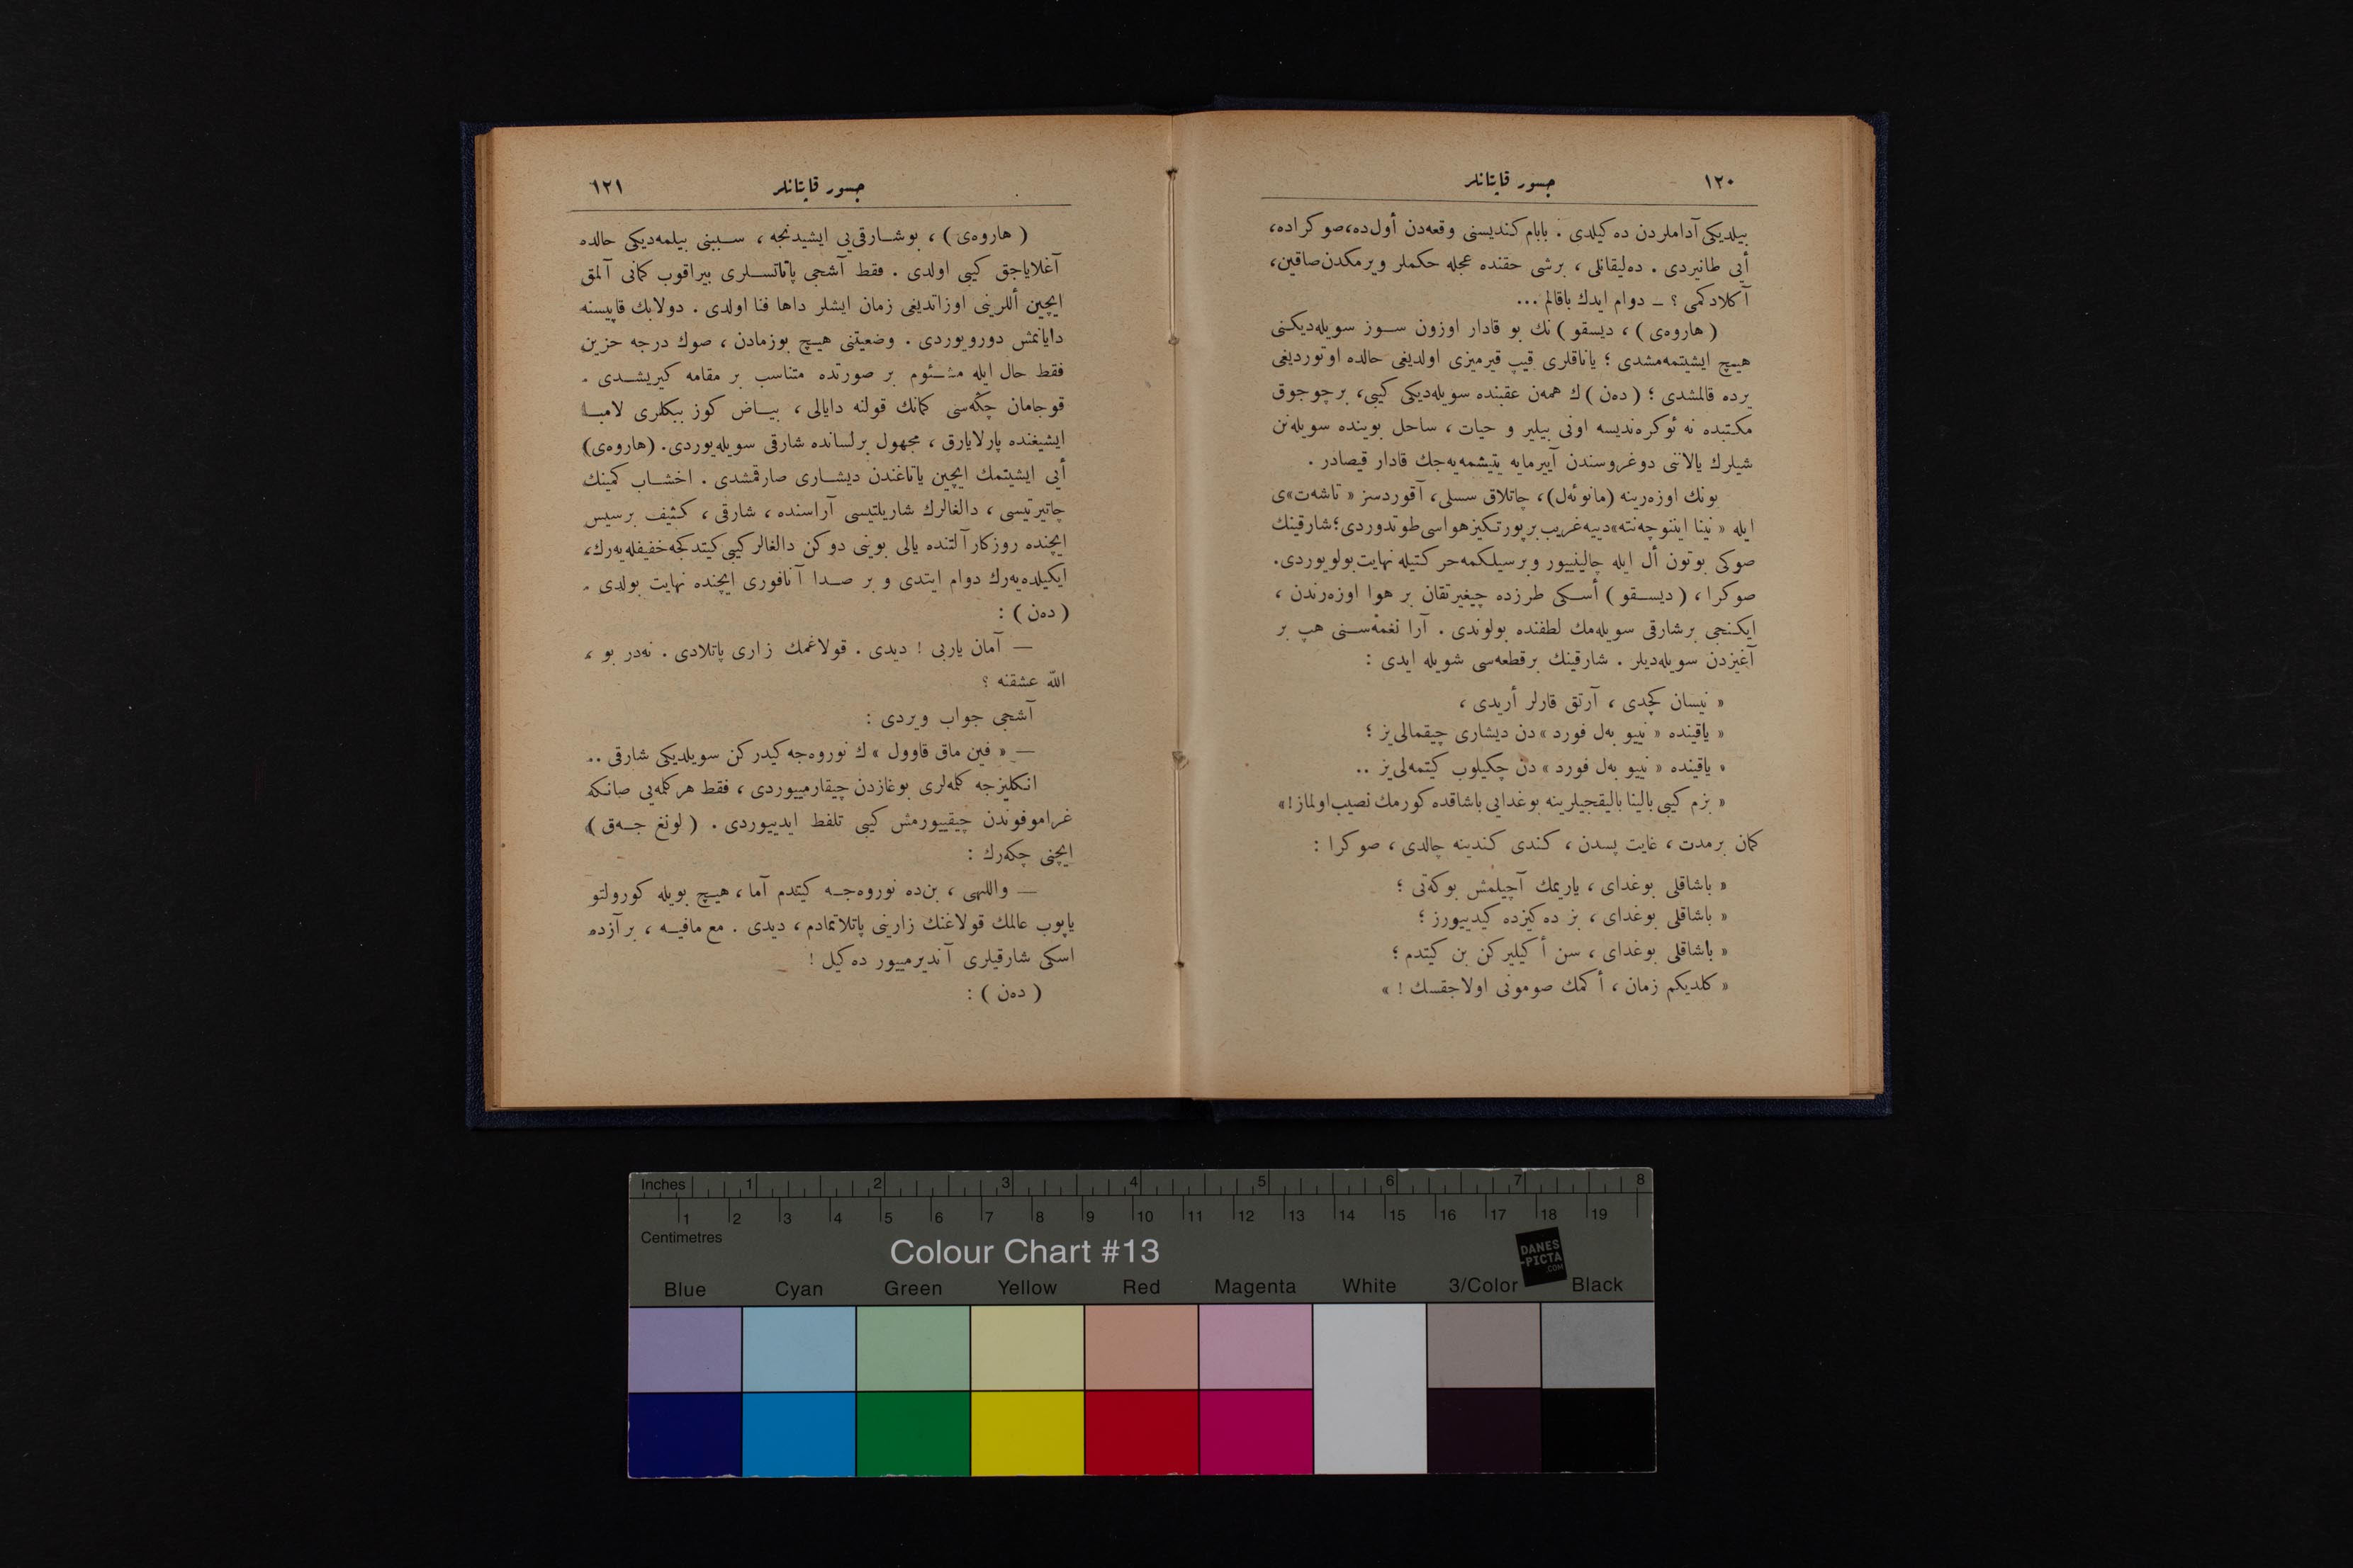 ١٢٠
جسور قاپتانلر
بیلدیکی آداملردن ده کیلدی . بابام کندیسنی وقعه‌دن أول ده، صوکراده،
أیی طانیردی . ده‌لیقانلی ، برشی حقنده عجله حکملر ویرمکدن صاقین،
آکلادکمی ؟ ـ دوام ایدك باقالم ...
( هاروه‌ی ) ، دیسقو ) نك بو قادار اوزون سوز سویله‌دیکنی
هیچ ایشیتمه‌مشدی ؛ یاناقلری قیپ قیرمیزی اولدیغی حالده اوتوردیغی
یرده قالمشدی ؛ ( ده‌ن ) ك همه‌ن عقبنده سویله‌دیکی کیبی، بر چوجوق
مکتبده نه ئوکره‌ندیسه اونی بیلیر و حیات ، ساحل بوینده سویله‌نن
شیلرك یالاننی دوغروسندن آییرمایه یتیشمه‌یه‌جك قادار قیصادر .
بونك اوزه‌رینه (مانوئه‌ل)، چاتلاق سسلی، آقوردسز « تاشه‌ت»ی
ایله « نینا ایننوچه‌نته» دییه غریب بر پورتکیز هواسی طوتدوردی؛ شارقینك
صوکی بوتون أل ایله چالینییور و بر سیلکمه حرکتیله نهایت بولویوردی.
صوکرا ، ( دیسقو ) أسکی طرزده چیغیرتقان بر هوا اوزه‌رندن ،
ایکنجی بر شارقی سویله‌مك لطفنده بولوندی . آرا نغمه‌سنی هپ بر
آغیزدن سویله‌دیلر . شارقینك بر قطعه‌سی شویله ایدی :
« نیسان کچدی ، آرتق قارلر أریدی ،
« یاقینده « نییو به‌ل فورد » دن دیشاری چیقمالی یز ؛
« یاقینده « نییو به‌ل فورد » دن چکیلوب کیتمه‌لی یز ..
« بزم کیبی بالینا بالیقجیلرینه بوغدایی باشاقده کورمك نصیب اولماز ! »
کمان بر مدت ، غایت پسدن ، کندی کندینه چالدی ، صوکرا :
« باشاقلی بوغدای ، یاریمك آچیلمش بوکه‌تی ؛
« باشاقلی بوغدای ، بز ده کیزده کیدییورز ؛
« باشاقلی بوغدای ، سن أ کیلیر کن بن کیتدم ؛
« کلدیکم زمان ، أ کمك صومونی اولاجقسك ! »
جسور قاپتانلر
١٢١
( هاروه‌ی ) ، بو شارقی یی ایشیدنجه ، سببنی بیلمه‌دیکی حالده
آغلایاجق کیبی اولدی . فقط آشجی پاتاتسلری بیراقوب کمانی آلمق
ایچین أللرینی اوزاتدیغی زمان ایشلر داها فنا اولدی . دولابك قاپیسنه
دایانمش دورویوردی . وضعیتنی هیچ بوزمادن ، صوك درجه حزین
فقط حال ایله مشئوم بر صورتده متناسب بر مقامه کیریشدی .
قوجامان چکه‌سی کمانك قولنه دایالی ، بیاض کوز ببکلری لامبا
ایشیغنده پارلایارق ، مجهول بر لسانده شارقی سویله‌یوردی . (هاروه‌ی)
أیی ایشیتمك ایچین یاتاغندن دیشاری صارقمشدی . اخشاب کمینك
چاتیرتیسی ، دالغالرك شاریلتیسی آراسنده ، شارقی ، کثیف بر سیس
ایچنده روزکار آلتنده یالی بوینی دوکن دالغالر کیبی کیتدکجه خفیفله‌یه‌رك،
ایکیلده‌یه‌رك دوام ایتدی و بر صدا آنافوری ایچنده نهایت بولدی .
( ده‌ن ) :
— آمان یاربی ! دیدی . قولاغمك زاری پاتلادی . نه‌در بو ،
الله عشقنه ؟
آشجی جواب ویردی :
— « فین ماق قاوول » ك نوروه‌جه کیدرکن سویلدیکی شارقی ..
انکلیزجه کلمه‌لری بوغازدن چیقارمییوردی ، فقط هر کلمه‌یی صانکه
غراموفوندن چیقییورمش کیبی تلفظ ایدییوردی . ( لونغ جه‌ق )
ایچنی چکه‌رك :
— واللهی ، بن ده نوروه‌جه کیتدم آما ، هیچ بویله کورولتو
یاپوب عالمك قولاغنك زارینی پاتلاتمادم ، دیدی . مع مافیه ، بر آزده
اسکی شارقیلری آندیرمییور ده کیل !
( ده‌ن ) :
Inches 1 2 3 4 5 6 7 8
1 2 3 4 5 6 7 8 9 10 11 12 13 14 15 16 17 18 19
Centimetres
Colour Chart #13
DANES
-PICTA
.COM
Blue Cyan Green Yellow Red Magenta White 3/Color Black